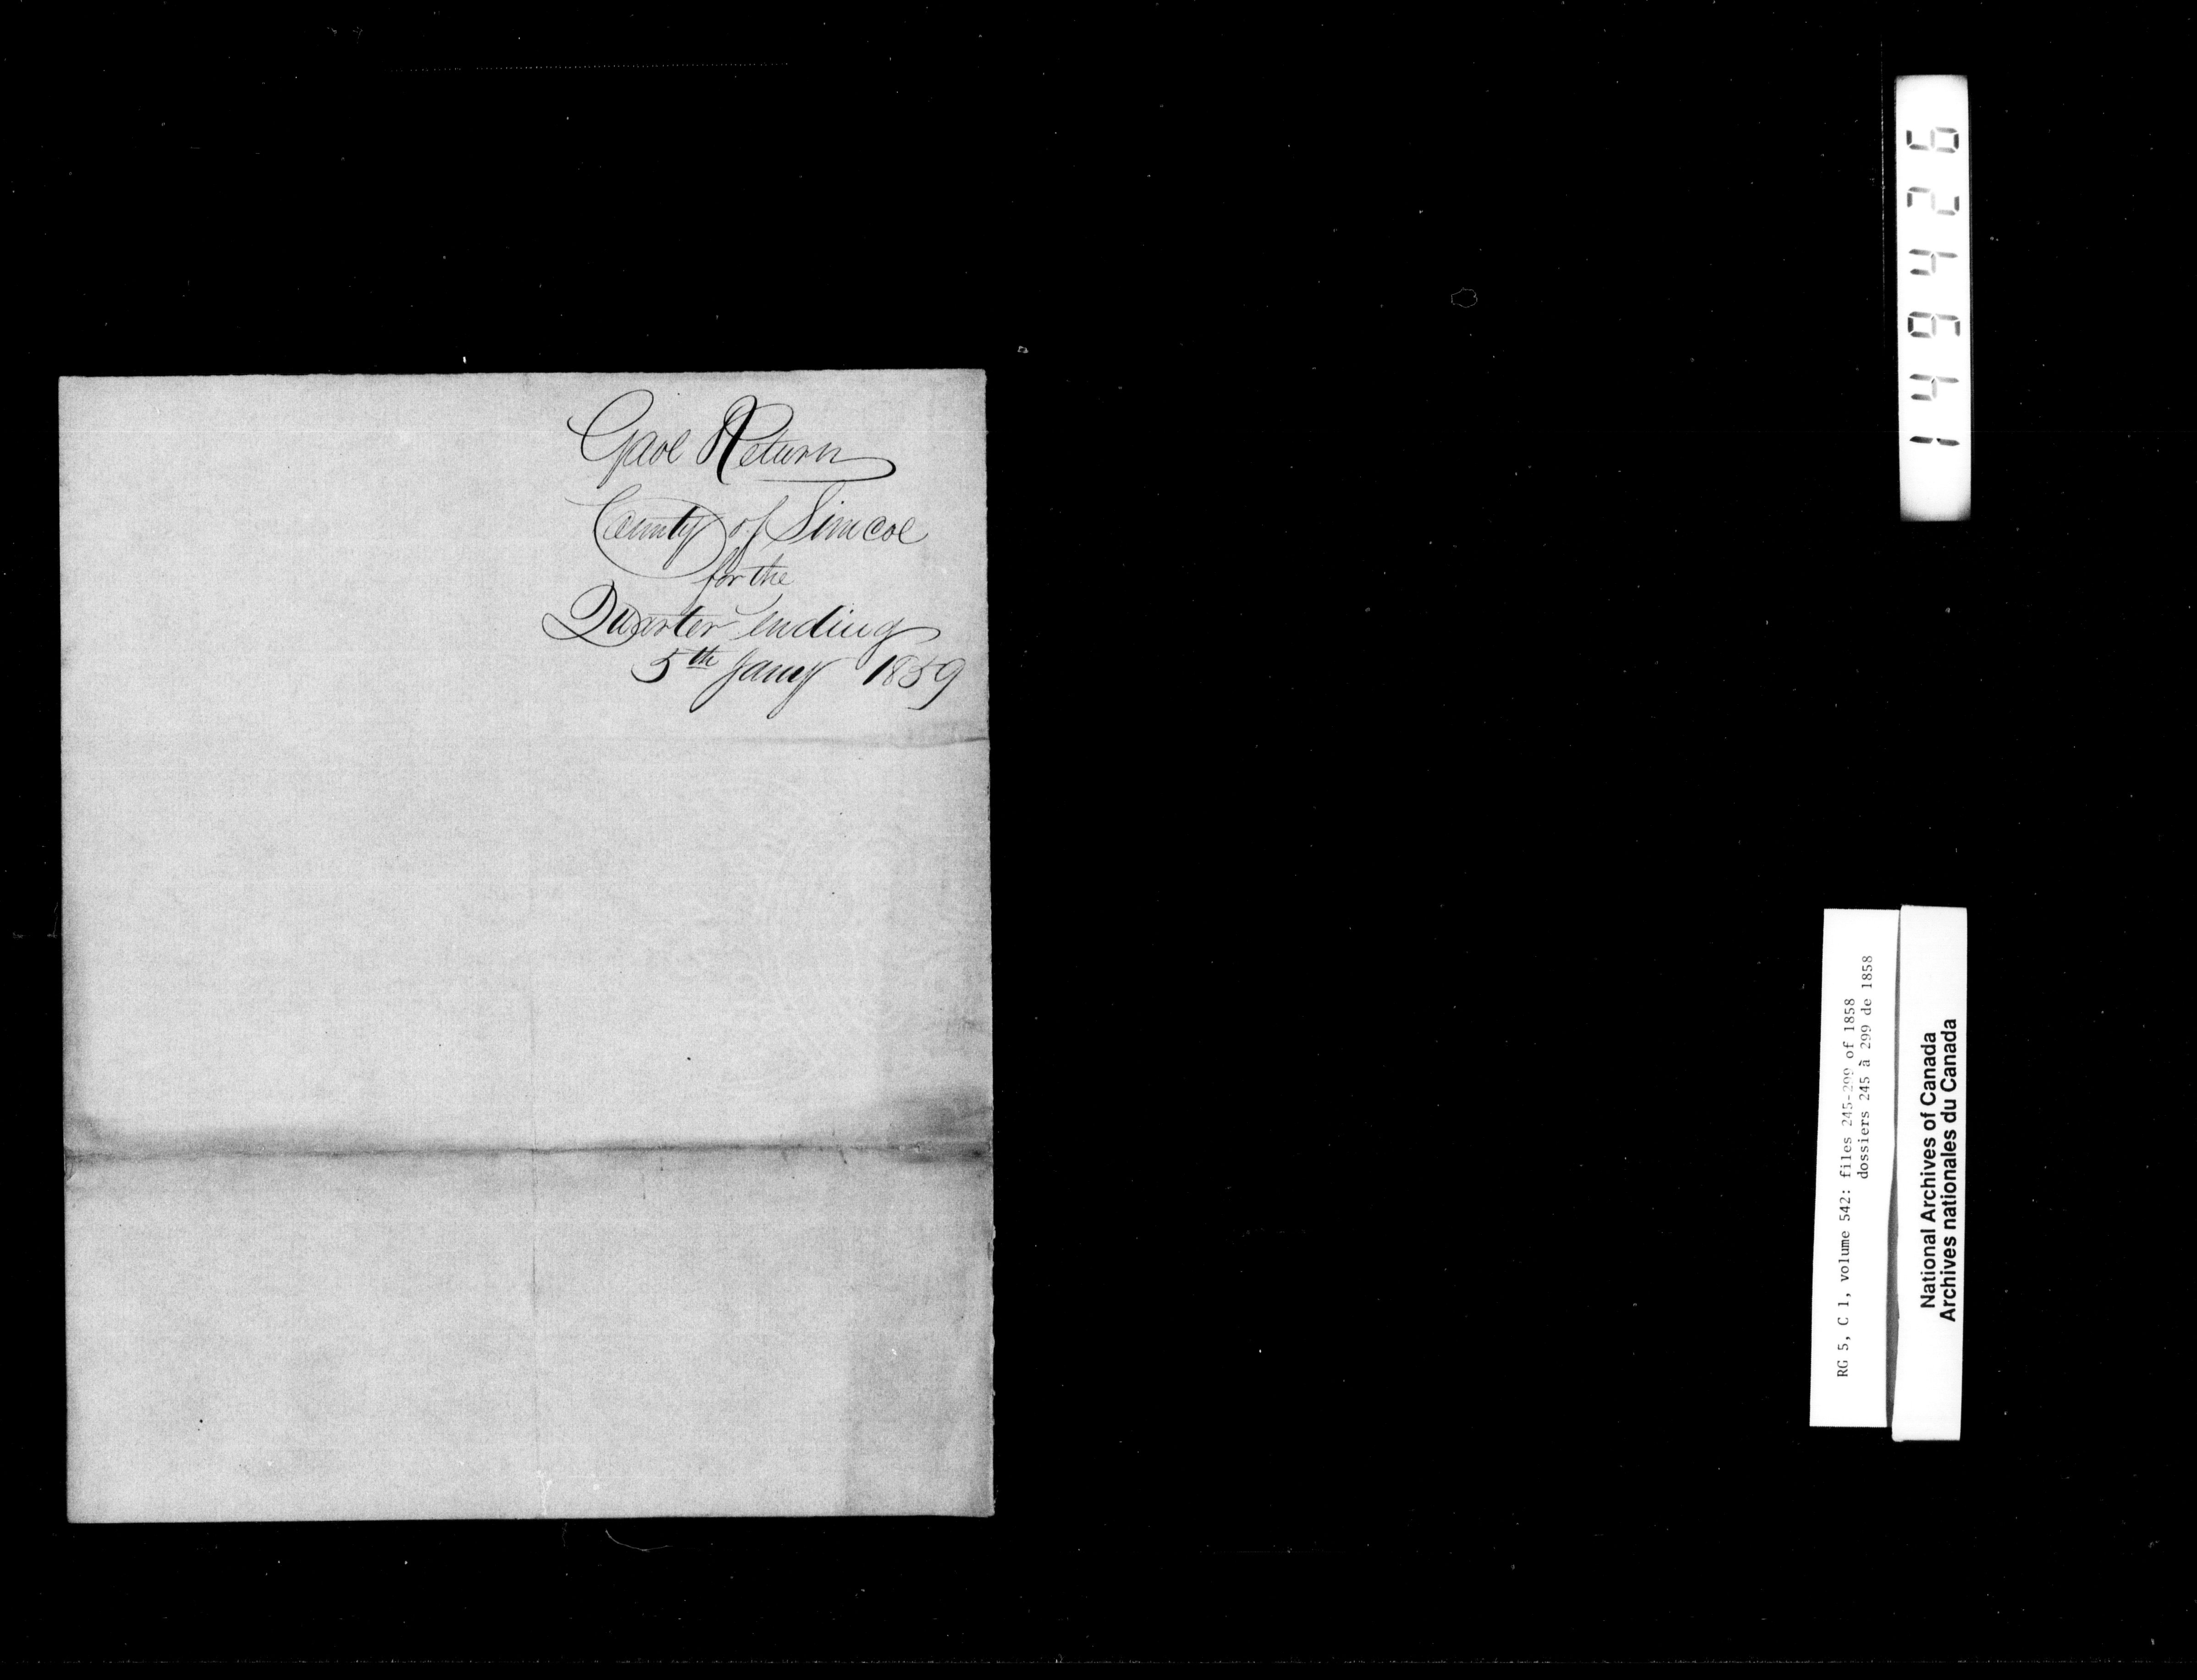 Gaol Return
County of Simcoe
for the
Quarter ending
5th Jany 1859
149426
RG 5, C 1, volume 542: files 245-299 of 1858
dossiers 245 à 299 de 1858
National Archives of Canada
Archives nationales du Canada